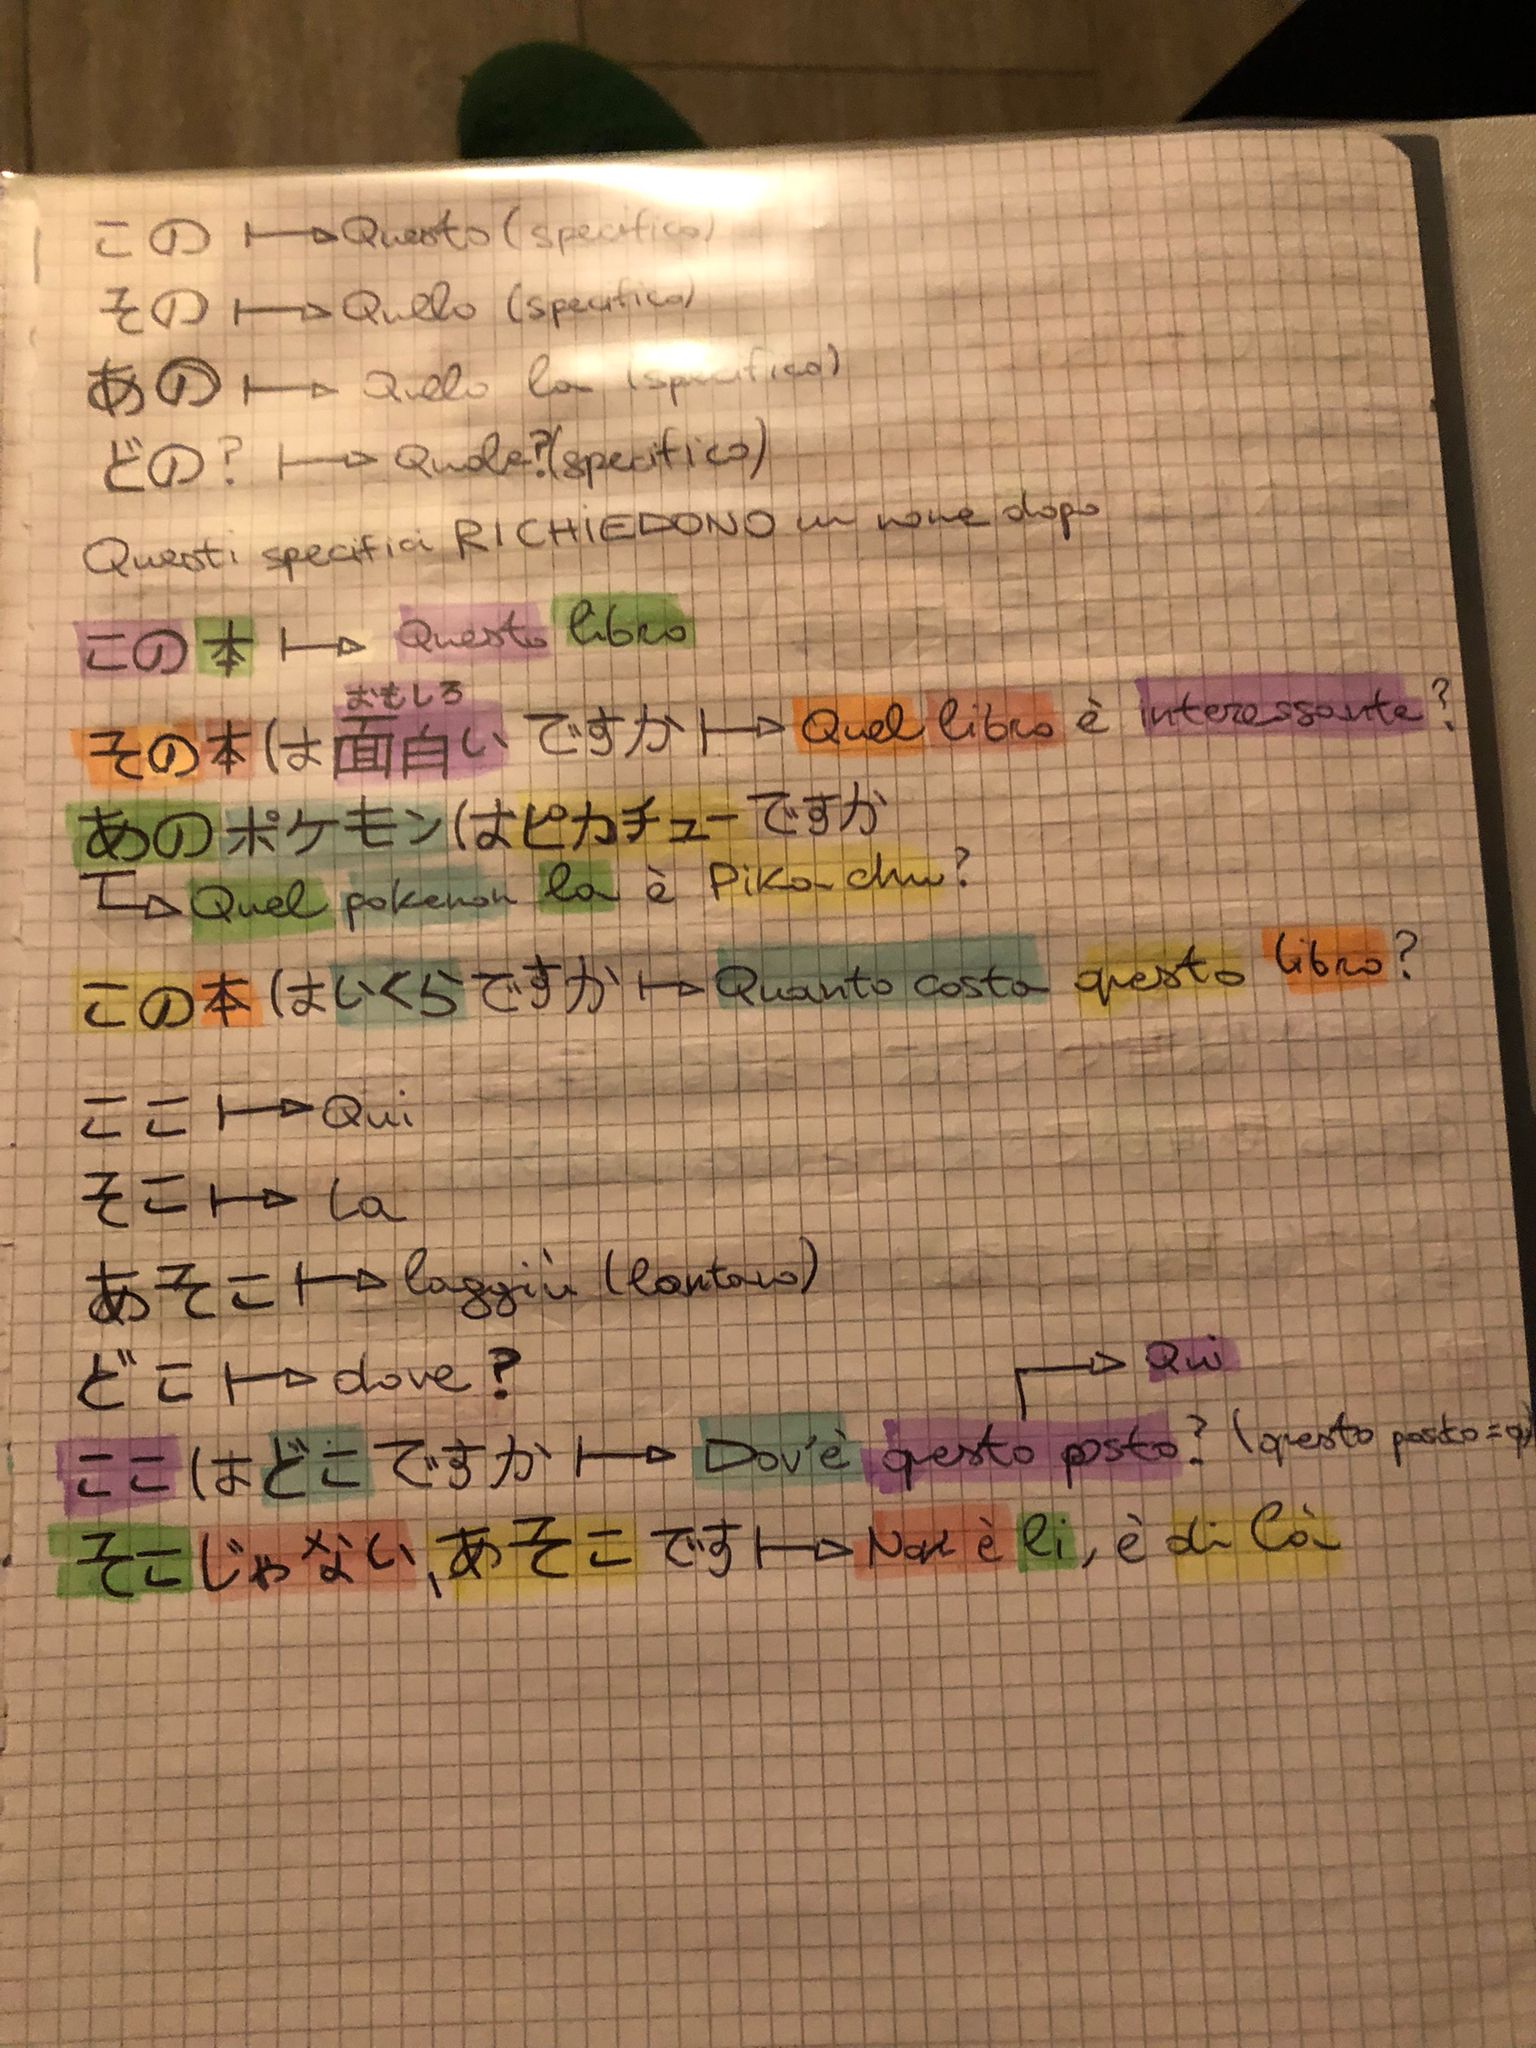 この → Questo (specifico)
その → Quello (specifico)
あの → Quello la (specifico)
どの? → Quale? (specifico)
Questi specifici RICHIEDONO un nome dopo
この本 → Questo libro
おもしろ
その本は面白いですか → Quel libro è interessante?
あのポケモンはピカチューですか
→ Quel pokemon la è Pikachu?
この本はいくらですか → Quanto costa questo libro?
ここ → Qui
そこ → La
あそこ → laggiù (lontano)
どこ → dove?
→ Qui
ここはどこですか → Dov'è questo posto? (questo posto =
そこじゃない、あそこです → Non è li, è di là